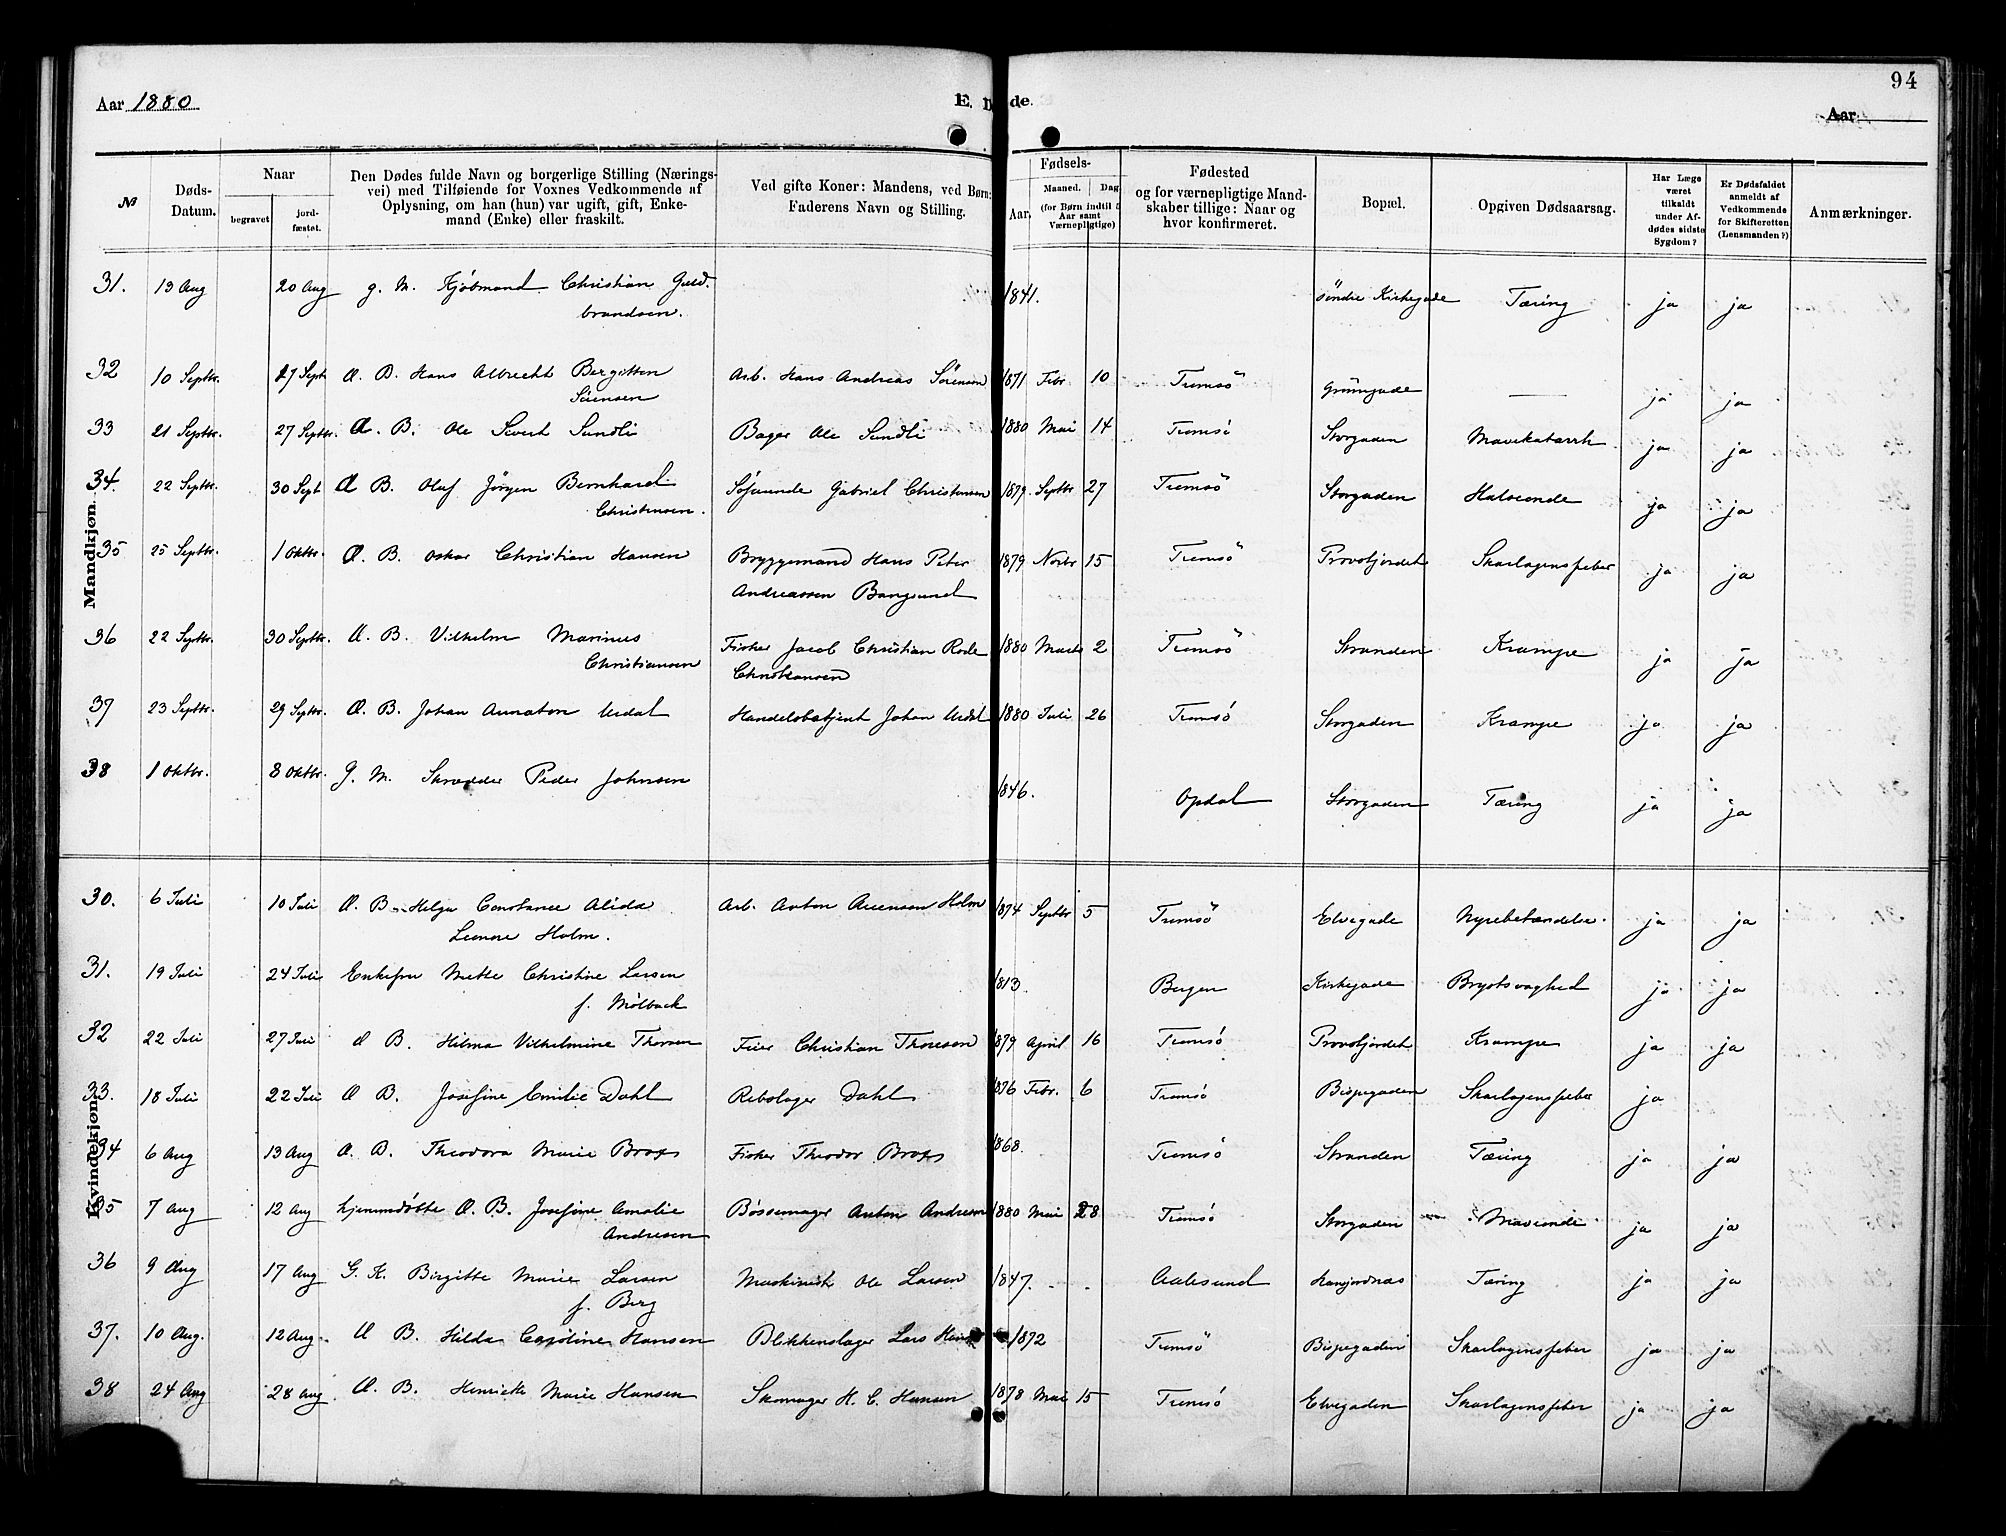 94
Aar 1880
E. Døde.
Aar
№
Døds-Datum.
Naar
begravet
jord-fæstet.
Den Dødes fulde Navn og borgerlige Stilling (Nærings-
vei) med Tilføiende for Voxnes Vedkommende af
Oplysning, om han (hun) var ugift, gift, Enke-
mand (Enke) eller fraskilt.
Ved gifte Koner: Mandens, ved Børn:
Faderens Navn og Stilling.
Fødsels-
Aar.
Maaned. Dag
(for Børn indtil 5
Aar samt
Værnepligtige)
Fødested
og for værnepligtige Mand-
skaber tillige: Naar og
hvor konfirmeret.
Bopæl.
Opgiven Dødsaarsag.
Har Læge
været
tilkaldt
under Af-
dødes sidste
Sygdom?
Er Dødsfaldet
anmeldt af
Vedkommende
for Skifteretten
(Lensmanden?)
Anmærkninger.
Mandkjøn.
31. 13 Aug 20 Aug g. M. Kjøbmand Christian Guld- 1841. söndre Kirkegade Tæring ja ja
brandsen.
32 10 Septbr. 17 Sept Æ. B. Hans Albrecht Bergitton Arb. Hans Andreas Sørensen 1871 Febr. 10 Tromsö Grönnegade — ja ja
Sørensen
33 21 Septbr. 27 Septbr. Æ. B. Ole Sivert Sundli Bager Ole Sundli 1880 Mai 14 Tromsö Storgaden Mavekatarrh ja ja
34. 22 Septbr. 30 Sept Æ B. Oluf Jörgen Bernhard Søfarende Gabriel Christensen 1879. Septbr 27 Tromsö Storgaden Halsonde ja ja
Christensen.
35 25 Septbr. 1 Oktbr. Æ. B. Oskar Christian Hansen Bryggemand Hans Peter 1879 Novbr 15 Tromsö Provstjordet Skarlagensfeber ja ja
Andreassen Bangsund
36 22 Septbr. 30 Septbr. Æ. B. Vilhelm Marinus Fisker Jacob Christian Rode 1880 Marts 2 Tromsö Stranden Krampe ja ja
Christiansen Christiansen
37 23 Septbr. 29 Septbr. Æ. B. Johan Annaton Urdal Handelsbetjent Johan Urdal 1880 Juli 26 Tromsö Storgaden Krampe ja ja
38 1 Oktbr. 8 Oktbr. G. M. Skrædder Peder Johnsen 1846. Opdal Storgaden Tæring ja ja
Kvindekjøn.
30. 6 Juli 10 Juli Æ. B. Helga Constance Alida Arb. Anton Arensen Holm 1874 Septbr 5 Tromsö Elvegade Nyrebetændelse. ja ja
Leonore Holm.
31. 19 Juli 24 Juli Enkefru Mette Christine Larsen 1813 Bergen Kirkegade Brystsvaghed ja ja
f. Mölback
32 22 Juli 27 Juli Æ B. Hilma Vilhelmine Thoresen Feier Christian Thoresen 1879 April 16 Tromsö Provstjordet Krampe ja ja
33. 18 Juli 22 Juli Æ B. Josefine Emilie Dahl Rebslager Dahl 1876 Febr. 6 Tromsö Bispegaden Skarlagensfeber ja
34 6 Aug 13 Aug Æ. B. Theodora Marie Brox Fisker Theodor Brox 1868. Tromsö Stranden Tæring ja ja
35 7 Aug 12 Aug hjemmedöbte Æ. B. Josefine Amalie Bössemager Anton Andresen 1880 Mai 28 Tromsö Storgaden Maveonde ja ja
Andresen
36 9 Aug 17 Aug G. K. Birgitte Marie Larsen Maskinist Ole Larsen 1847. Aalesund Tæring ja ja
f. Berg
37. 10 Aug. 12 Aug. Æ B. Hilda Caroline Hansen Blikkenslager Lars Hansen 1872 Tromsö Bispegaden Skarlagensfeber ja ja
38 24 Aug 28 Aug Æ. B. Henriette Marie Hansen Skomager H. C. Hansen 1878 Mai 15 Tromsö Elvegaden Skarlagensfeber ja ja